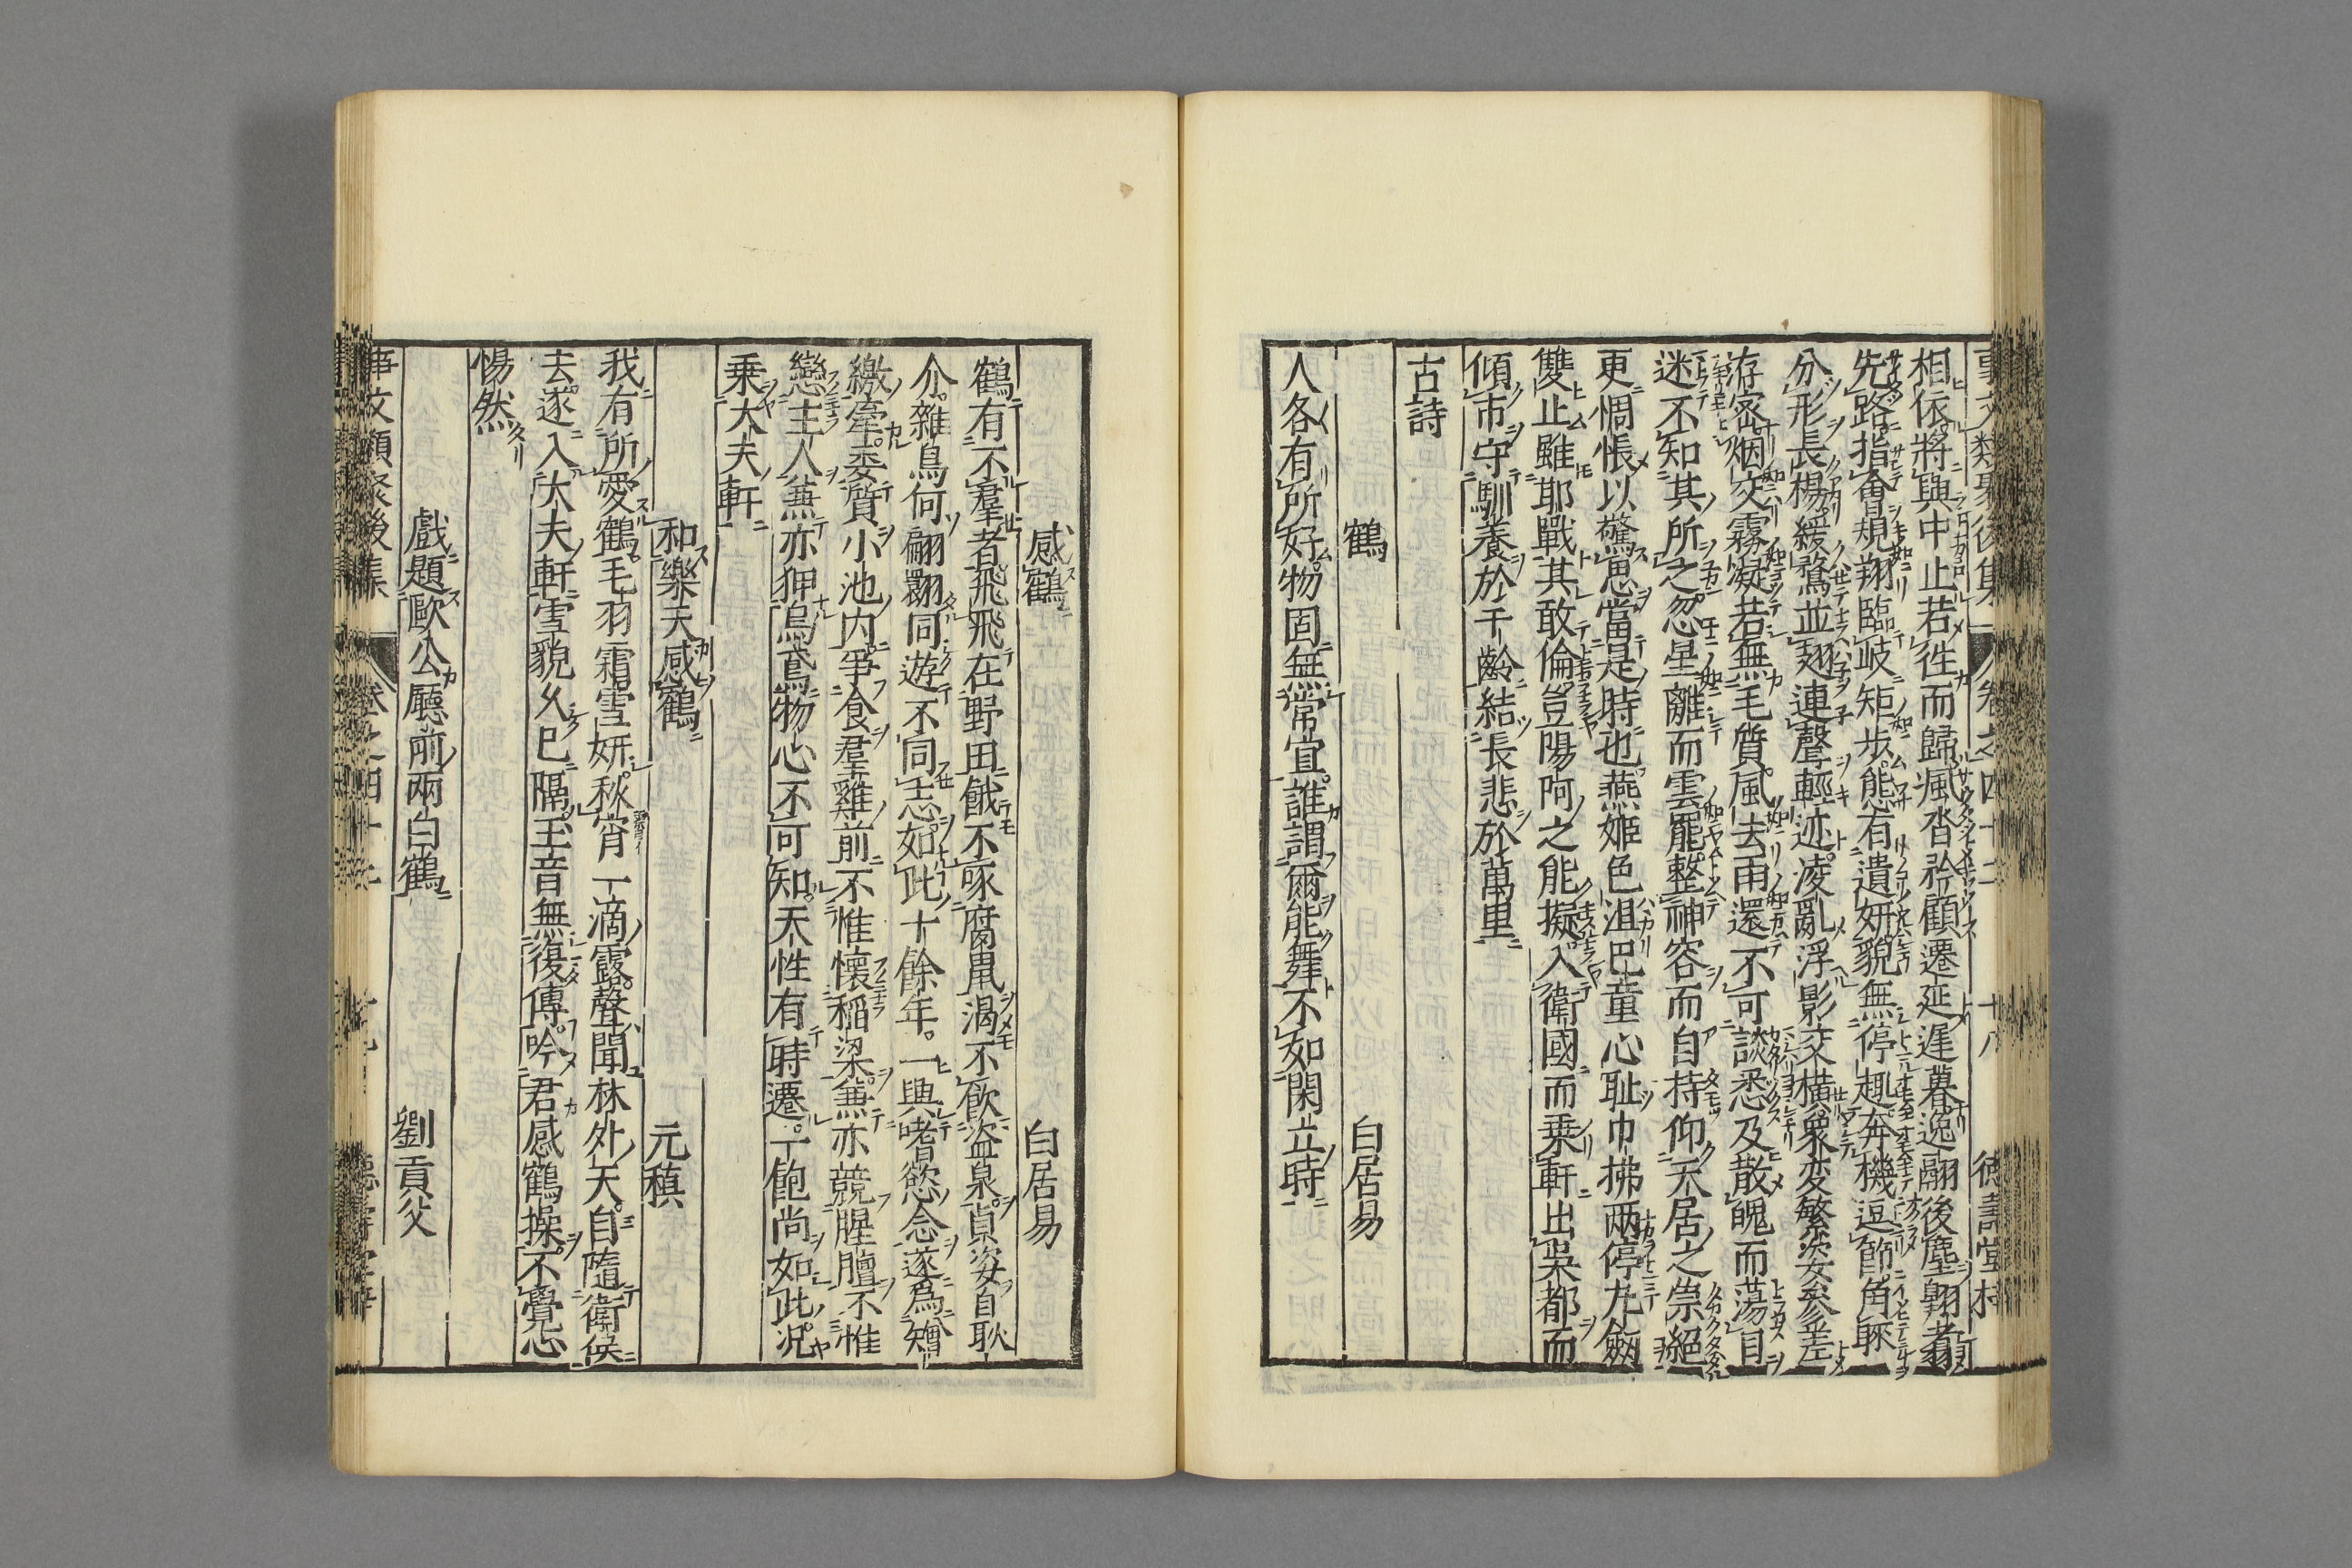 事文類聚後集 卷之四十二 十八 德壽堂梓
相依將與中止若徃而歸颯沓矜顧遷延遲暮逸翮後塵翱翥
先路指會規翔臨岐矩步態有遺妍貌無停趣奔機逗節角睞
分形長楊緩騖並翅連聲輕迹凌亂浮影交橫衆变繁姿參差
洊密烟交霧凝若無毛質風去雨還不可談悉及散魄而蕩目
迷不知其所之忽星離而雲罷整神容而自持仰天居之崇絕
更惆悵以驚思當是時也燕姬色沮巴童心耻巾拂兩停丸劒
雙止雖耶戰其敢倫豈陽阿之能擬入衛國而乗軒出吳都而
傾市守馴養於千齡結長悲於萬里
古詩
鶴 白居易
人各有所好物固無常宜誰謂爾能舞不如閑立時
感鶴 白居易
鶴有不羣者飛飛在野田餓不啄腐鼠渴不飮盜泉貞姿自耿
介雜鳥何翩翾同遊不同志如此十餘年一興嗜慾念遂爲矰
繳牽委質小池内爭食羣雞前不惟懷稲梁兼亦競腥膻不惟
戀主人兼亦狎烏鳶物心不可知天性有時遷一飽尚如此况
乗大夫軒
和樂天感鶴 元稹
我有所愛鶴毛羽霜雪妍秋宵一滴露聲聞林外天自隨衛侯
去遂入大夫軒雲貌久已隔玉音無復傳吟君感鶴操不覺心
惕然
戲題歐公廳前兩白鶴 劉貢父
事文類聚後集 卷之四十二